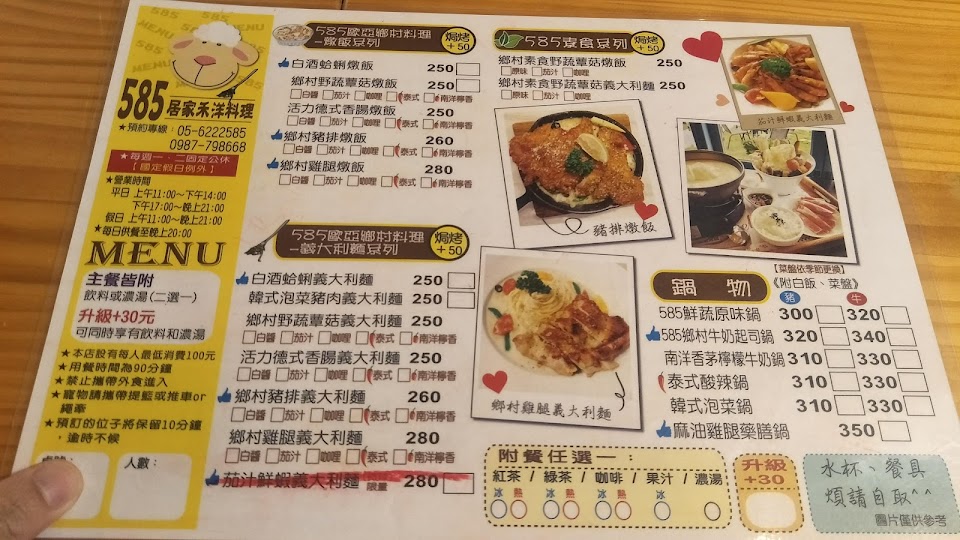 585
MENU
585
585
居家禾洋料理
★預約專線：05-6222585
0987-798668
★每週一、二固定公休
【國定假日例外】
★營業時間
平日 上午11:00～下午14:00
下午17:00～晚上21:00
假日 上午11:00～晚上21:00
★每日供餐至晚上20:00
MENU
主餐皆附
飲料或濃湯(二選一)
升級+30元
可同時享有飲料和濃湯
★本店設有每人最低消費100元
★用餐時間為90分鐘
★禁止攜帶外食進入
★寵物請攜帶提籃或推車or
繩牽
★預訂的位子將保留10分鐘
，逾時不候
人數：
585歐亞鄉村料理
-燉飯系列
焗烤
+50
白酒蛤蜊燉飯 250
鄉村野蔬蕈菇燉飯 250
白醬 茄汁 咖哩 泰式 南洋檸香
活力德式香腸燉飯 250
白醬 茄汁 咖哩 泰式 南洋檸香
鄉村豬排燉飯 260
白醬 茄汁 咖哩 泰式 南洋檸香
鄉村雞腿燉飯 280
白醬 茄汁 咖哩 泰式 南洋檸香
585歐亞鄉村料理
-義大利麵系列
焗烤
+50
白酒蛤蜊義大利麵 250
韓式泡菜豬肉義大利麵 250
鄉村野蔬蕈菇義大利麵 250
白醬 茄汁 咖哩 泰式 南洋檸香
活力德式香腸義大利麵 250
白醬 茄汁 咖哩 泰式 南洋檸香
鄉村豬排義大利麵 260
白醬 茄汁 咖哩 泰式 南洋檸香
鄉村雞腿義大利麵 280
白醬 茄汁 咖哩 泰式 南洋檸香
茄汁鮮蝦義大利麵 限量 280
585素食系列
焗烤
+50
鄉村素食野蔬蕈菇燉飯 250
原味 茄汁 咖哩
鄉村素食野蔬蕈菇義大利麵 250
原味 茄汁 咖哩
茄汁鮮蝦義大利麵
豬排燉飯
鄉村雞腿義大利麵
【菜盤依季節更換】
鍋物
《附白飯、菜盤》
豬 牛
585鮮蔬原味鍋 300 320
585鄉村牛奶起司鍋 320 340
南洋香茅檸檬牛奶鍋 310 330
泰式酸辣鍋 310 330
韓式泡菜鍋 310 330
麻油雞腿藥膳鍋 350
附餐任選一：
紅茶 / 綠茶 / 咖啡 / 果汁 / 濃湯
冰 熱 冰 熱 冰 熱 冰
升級
+30
水杯、餐具
煩請自取^^
圖片僅供參考